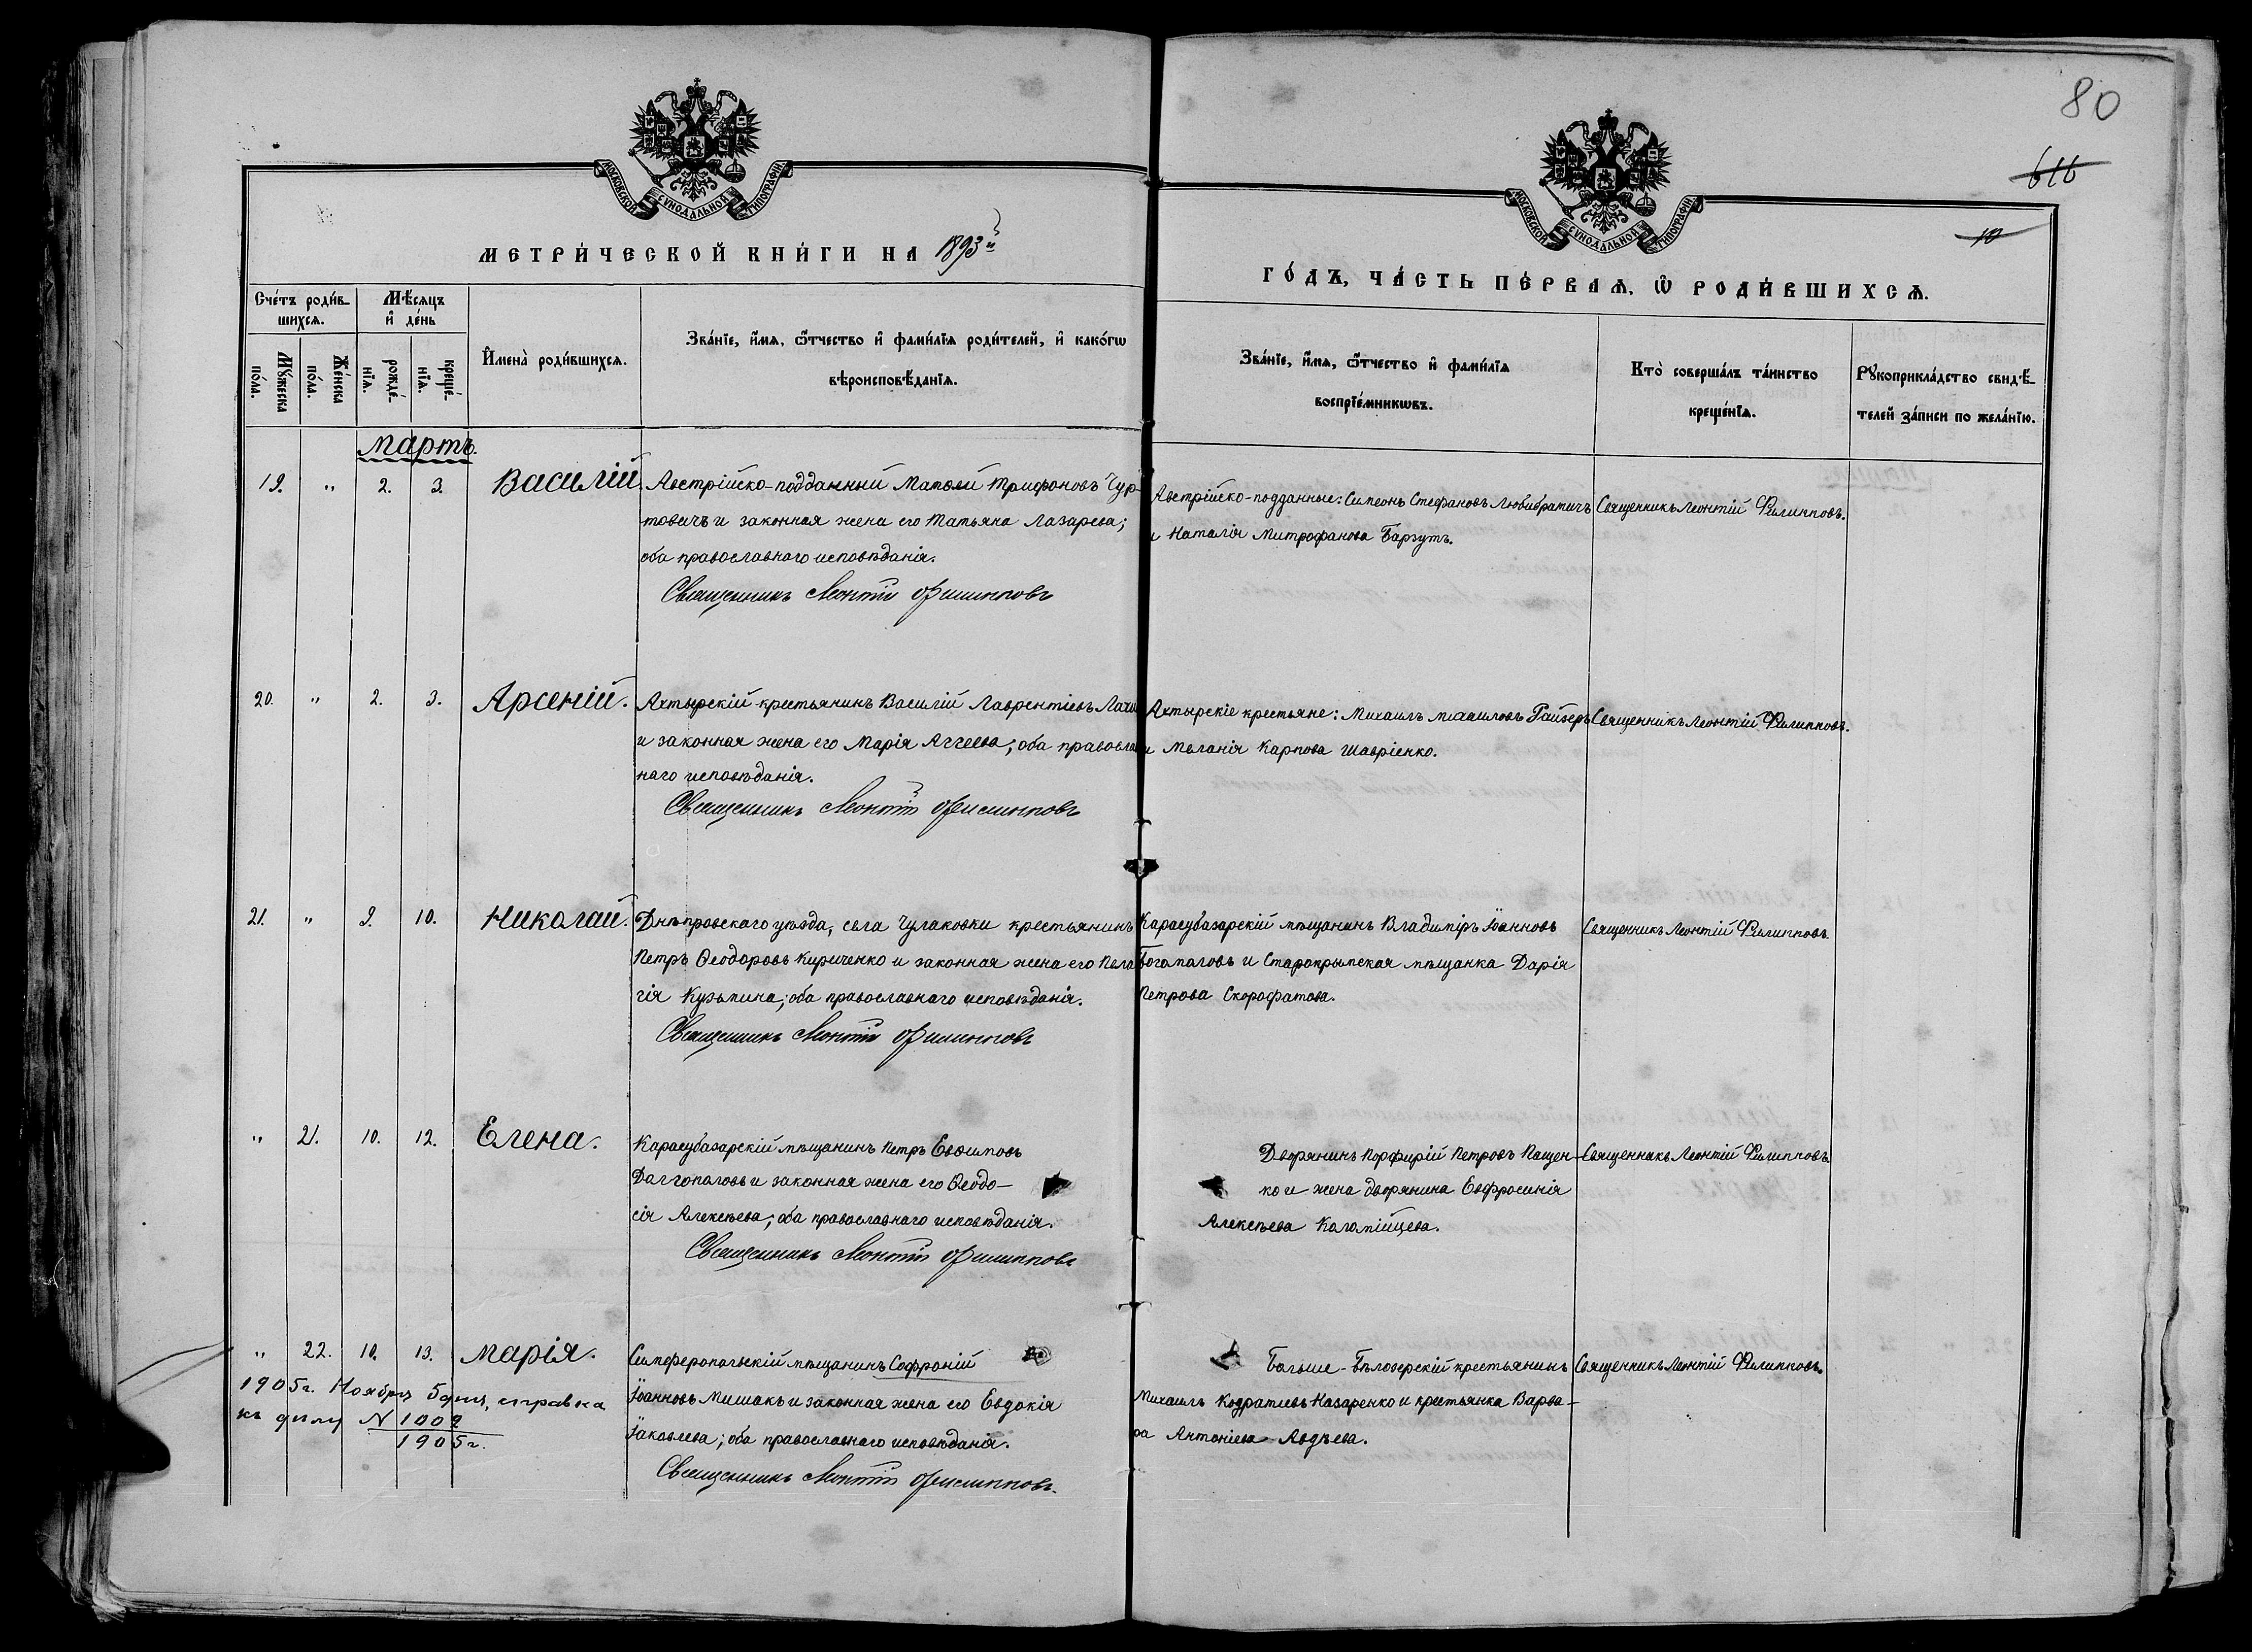 80
616
10
МОСКОВСКОЙ СѴНОДАЛЬНОЙ ТИПОГРАФІИ
МОСКОВСКОЙ СѴНОДАЛЬНОЙ ТИПОГРАФІИ
МЕТРИ́ЧЕСКОЙ КНИ́ГИ НА 1893й
ГО́ДЪ, ЧА́СТЬ ПЕ́РВАѦ, Ѽ РОДИ́ВШИХСѦ.
Сче́тъ роди́в-
шихсѧ.
Мѣ́сѧцъ
и҆ де́нь
Мꙋ́жеска
по́ла.
Же́нска
по́ла.
рожде́-
нїѧ.
креще́-
нїѧ.
И҆мена̀ роди́вшихсѧ.
Зва́нїе, и҆́мѧ, ѻ҆́тчество и҆ фами́лїѧ роди́телей, и҆ како́гѡ
вѣроисповѣ́данїѧ.
Зва́нїе, и҆́мѧ, ѻ҆́тчество и҆ фами́лїѧ
воспрїе́мникѡвъ.
Кто̀ соверша́лъ та́инство
креще́нїѧ.
Рꙋкоприкла́дство свидѣ́-
телей за́писи по жела́нїю.
Мартъ.
19. " 2. 3. Василій. Австрійско-подданный Матѳей Трифоновъ Чур-
товичъ и законная жена его Татьяна Лазарева;
оба православнаго исповѣданія.
Священникъ Леонтій Филипповъ
Австрійско-подданные: Симеонъ Стефановъ Любибратичъ
и Наталія Митрофанова Барзутъ.
Священникъ Леонтій Филипповъ.
20. " 2. 3. Арсеній. Ахтырскій крестьянинъ Василій Лаврентіевъ
и законная жена его Марія Аггеева; оба правосла
наго исповѣданія.
Священникъ Леонтій Филипповъ
Ахтырскіе крестьяне: Михаилъ Михаиловъ Гайзеръ
и Меланія Карпова Шавріенко.
Священникъ Леонтій Филипповъ.
21. " 9. 10. Николай. Днѣпровскаго уѣзда, села Чулаковки крестьянинъ
Петръ Ѳеодоровъ Кириченко и законная жена его Пела
гія Кузьмина; оба православнаго исповѣданія.
Священникъ Леонтій Филипповъ
Карасубазарскій мѣщанинъ Владиміръ Іоанновъ
Богомаловъ и Старокрымская мѣщанка Дарія
Петрова Скорофатова.
Священникъ Леонтій Филипповъ.
" 21. 10. 12. Елена. Карасубазарскій мѣщанинъ Петръ Евѳимовъ
Далгопаловъ и законная жена его Ѳеодо-
сія Алексѣева; оба православнаго исповѣданія.
Священникъ Леонтій Филипповъ
Дворянинъ Порфирій Петровъ Пащен-
ко и жена дворянина Евфросинія
Алексѣева Каломійцева.
Священникъ Леонтій Филипповъ.
" 22. 10. 13. Марія. Симферопольскій мѣщанинъ Софроній
Іоанновъ Мишакъ и законная жена его Евдокія
Іаковлева; оба православнаго исповѣданія.
Священникъ Леонтій Филипповъ.
1905г. Ноября 5 дня, справка
къ дѣлу N 1009
1905 г.
Больше-Бѣлозерскій крестьянинъ
Михаилъ Кодратіевъ Назаренко и крестьянка Варва-
ра Антоніева Авдѣева.
Священникъ Леонтій Филипповъ.